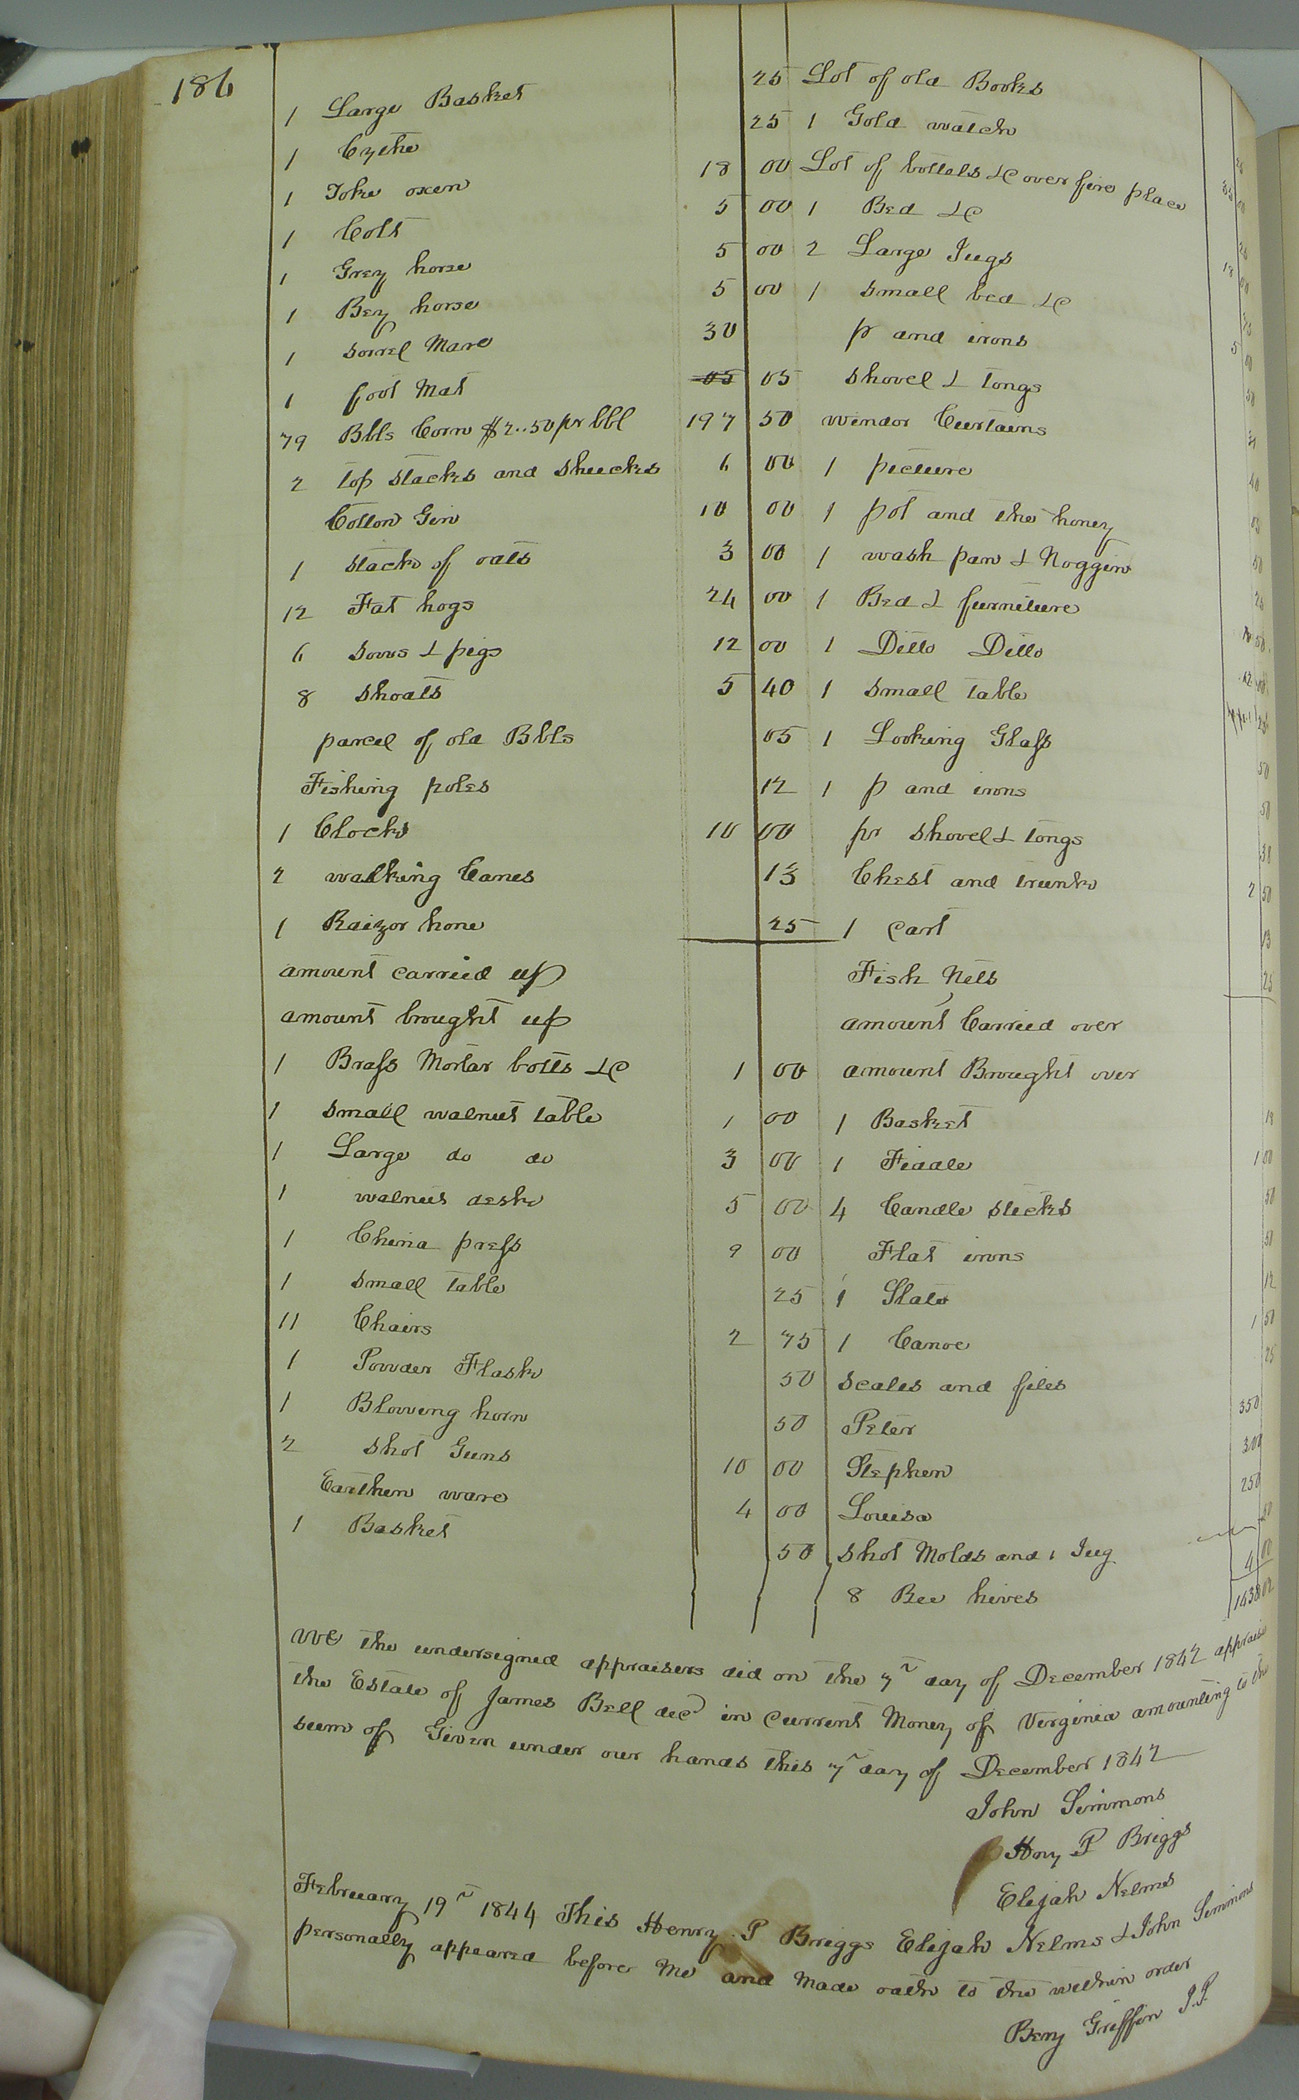 186
1 Large Basket 25
1 Cythe 25
1 Yoke oxen 18 00
1 Colt 5 00
1 Grey horse 5 00
1 Bey horse 5 00
1 Sorrel Mare 30
1 foot Mat 05
79 Bbls Corn $2..50 pr bbl 197 50
2 top stacks and shucks 6 00
Cotton Gin 10 00
1 stack of oats 3 00
12 Fat hogs 24 00
6 Sows & pigs 12 00
8 Shoats 5 40
parcel of old Bbls 05
Fishing poles 12
1 Clock 10 00
2 walking Canes 13
1 Raizor hone 25
amount carried up
amount brought up
1 Brass Mortar botts &C 1 00
1 Small walnut table 1 00
1 Large do do 3 00
1 walnut desk 5 00
1 China press 9 00
1 Small table 25
11 Chairs 2 75
1 Powder Flask 50
1 Blowing horn 50
2 Shot Guns 10 00
Earthen ware 4 00
1 Basket 50
Lot of old Books
1 Gold watch
Lot of bottels &C over fire place
1 Bed &C
2 Large Jugs
1 Small bed &C
pr and irons
Shovel & tongs
Windor Curtains
1 picture
1 pot and the honey
1 wash pan & Noggin
1 Bed & furniture
1 Ditto Ditto
1 Small table
1 Looking Glass
1 p and irons
pr Shovel & tongs
Chest and trunk 2 50
1 Cart
Fish Nets
amount Carried over
amount Brought over
1 Basket
1 Fiddle 1 00
4 Candle sticks 50
Flat irons 50
1 Slate 12
1 Canoe 1 50
Scales and files 25
Peter 350
Stephen 300
Louisa 250
Shot Molds and 1 Jug
8 Bee hives 4 00
We the undersigned appraisers did on the 7th day of December 1842 appraise
the Estate of James Bell decd in Current Money of Virginia amounting to the
sum of Given under our hands this 7th day of December 1842
John Simmons
Heny P Briggs
Elijah Nelms
February 19th 1844 This Henry P Briggs Elijah Nelms & John Simmons
personally appeared before Me and Made oath to the within order
Benj Griffin J.P.